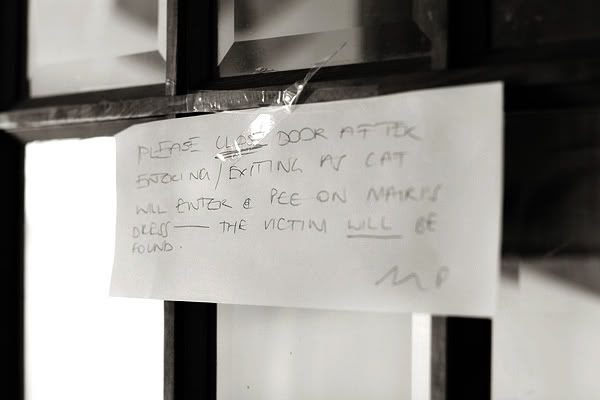 PLEASE CLOSE DOOR AFTER
ENTERING/EXITING AS CAT
WILL ENTER & PEE ON MAIRI'S
DRESS — THE VICTIM WILL BE
FOUND.
MP